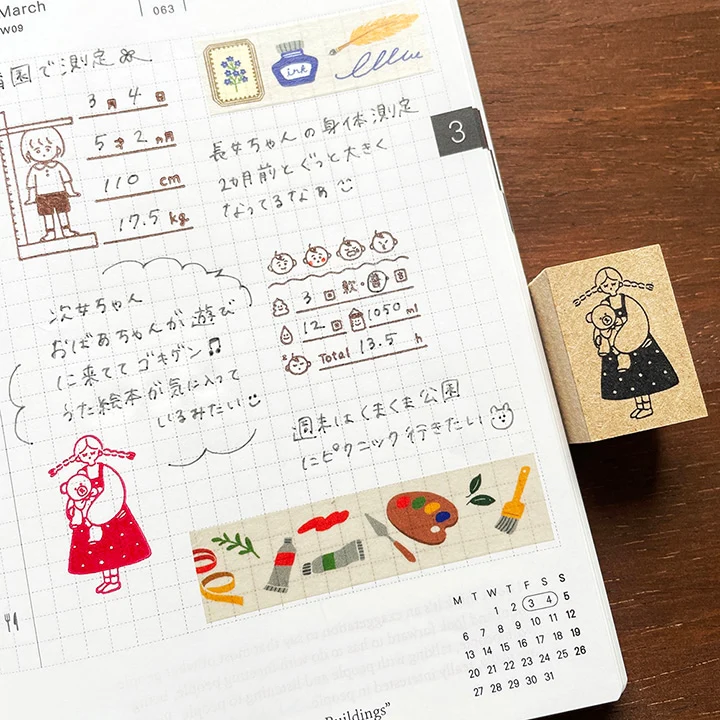 March
W09
063
育園で測定
3月 4日
5才 2ヵ月
110 cm
17.5 kg
ink
長女ちゃんの身体測定
2ヵ月前とぐっと大きく
なってるなぁ
3
3回 軟・普・固
12回 1050 ml
Total 13.5 h
次女ちゃん
おばあちゃんが遊び
に来ててゴキゲン♫
うた絵本が気に入って
いるみたい
週末はくまくま公園
にピクニック行きたい
M T W T F S S
1 2 3 4 5
6 7 8 9 10 11 12
13 14 15 16 17 18 19
20 21 22 23 24 25 26
27 28 29 30 31
Buildings”